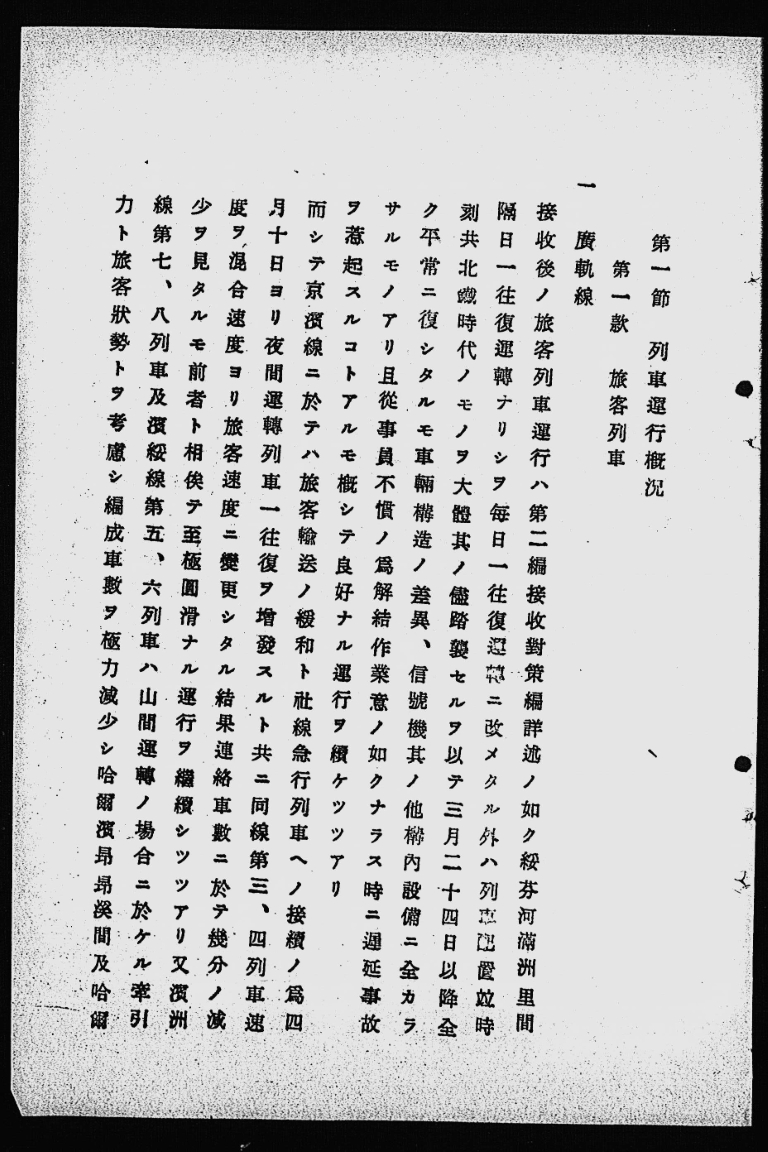 第一節　列車運行概況
第一款　旅客列車
一　廣軌線
接收後ノ旅客列車運行ハ第二編接收對策編詳述ノ如ク綏芬河滿洲里間
隔日一往復運轉ナリシヲ每日一往復運轉ニ改メタル外ハ列車配置竝時
刻共北鐵時代ノモノヲ大體其ノ儘踏襲セルヲ以テ三月二十四日以降全
ク平常ニ復シタルモ車輛構造ノ差異、信號機其ノ他構內設備ニ全カラ
サルモノアリ且從事員不慣ノ爲解結作業意ノ如クナラス時ニ遲延事故
ヲ惹起スルコトアルモ槪シテ良好ナル運行ヲ續ケツツアリ
而シテ京濱線ニ於テハ旅客輸送ノ緩和ト社線急行列車ヘノ接續ノ爲四
月十日ヨリ夜間運轉列車一往復ヲ增發スルト共ニ同線第三、四列車速
度ヲ混合速度ヨリ旅客速度ニ變更シタル結果連絡車數ニ於テ幾分ノ減
少ヲ見タルモ前者ト相俟テ至極圓滑ナル運行ヲ繼續シツツアリ又濱洲
線第七、八列車及濱綏線第五、六列車ハ山間運轉ノ場合ニ於ケル牽引
力ト旅客狀勢トヲ考慮シ編成車數ヲ極力減少シ哈爾濱昻昻溪間及哈爾